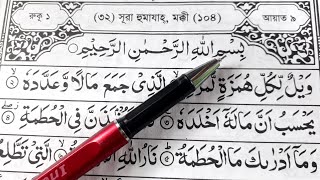 রুকু ১ (৩২) সূরা হুমাযাহ্, মক্কী (১০৪) আয়াত ৯
بِسْمِ اللّٰهِ الرَّحْمٰنِ الرَّحِيْمِ
وَيْلٌ لِّكُلِّ هُمَزَةٍ لُّمَزَةِ الَّذِىْ جَمَعَ مَالًا وَّعَدَّدَهٗ
يَحْسَبُ اَنَّ مَالَهٗٓ اَخْلَدَهٗ فِى الْحُطَمَةِ
وَمَآ اَدْرٰىكَ مَا الْحُطَمَةُ نَارُ اللّٰهِ الَّتِىْ تَطَّلِعُ